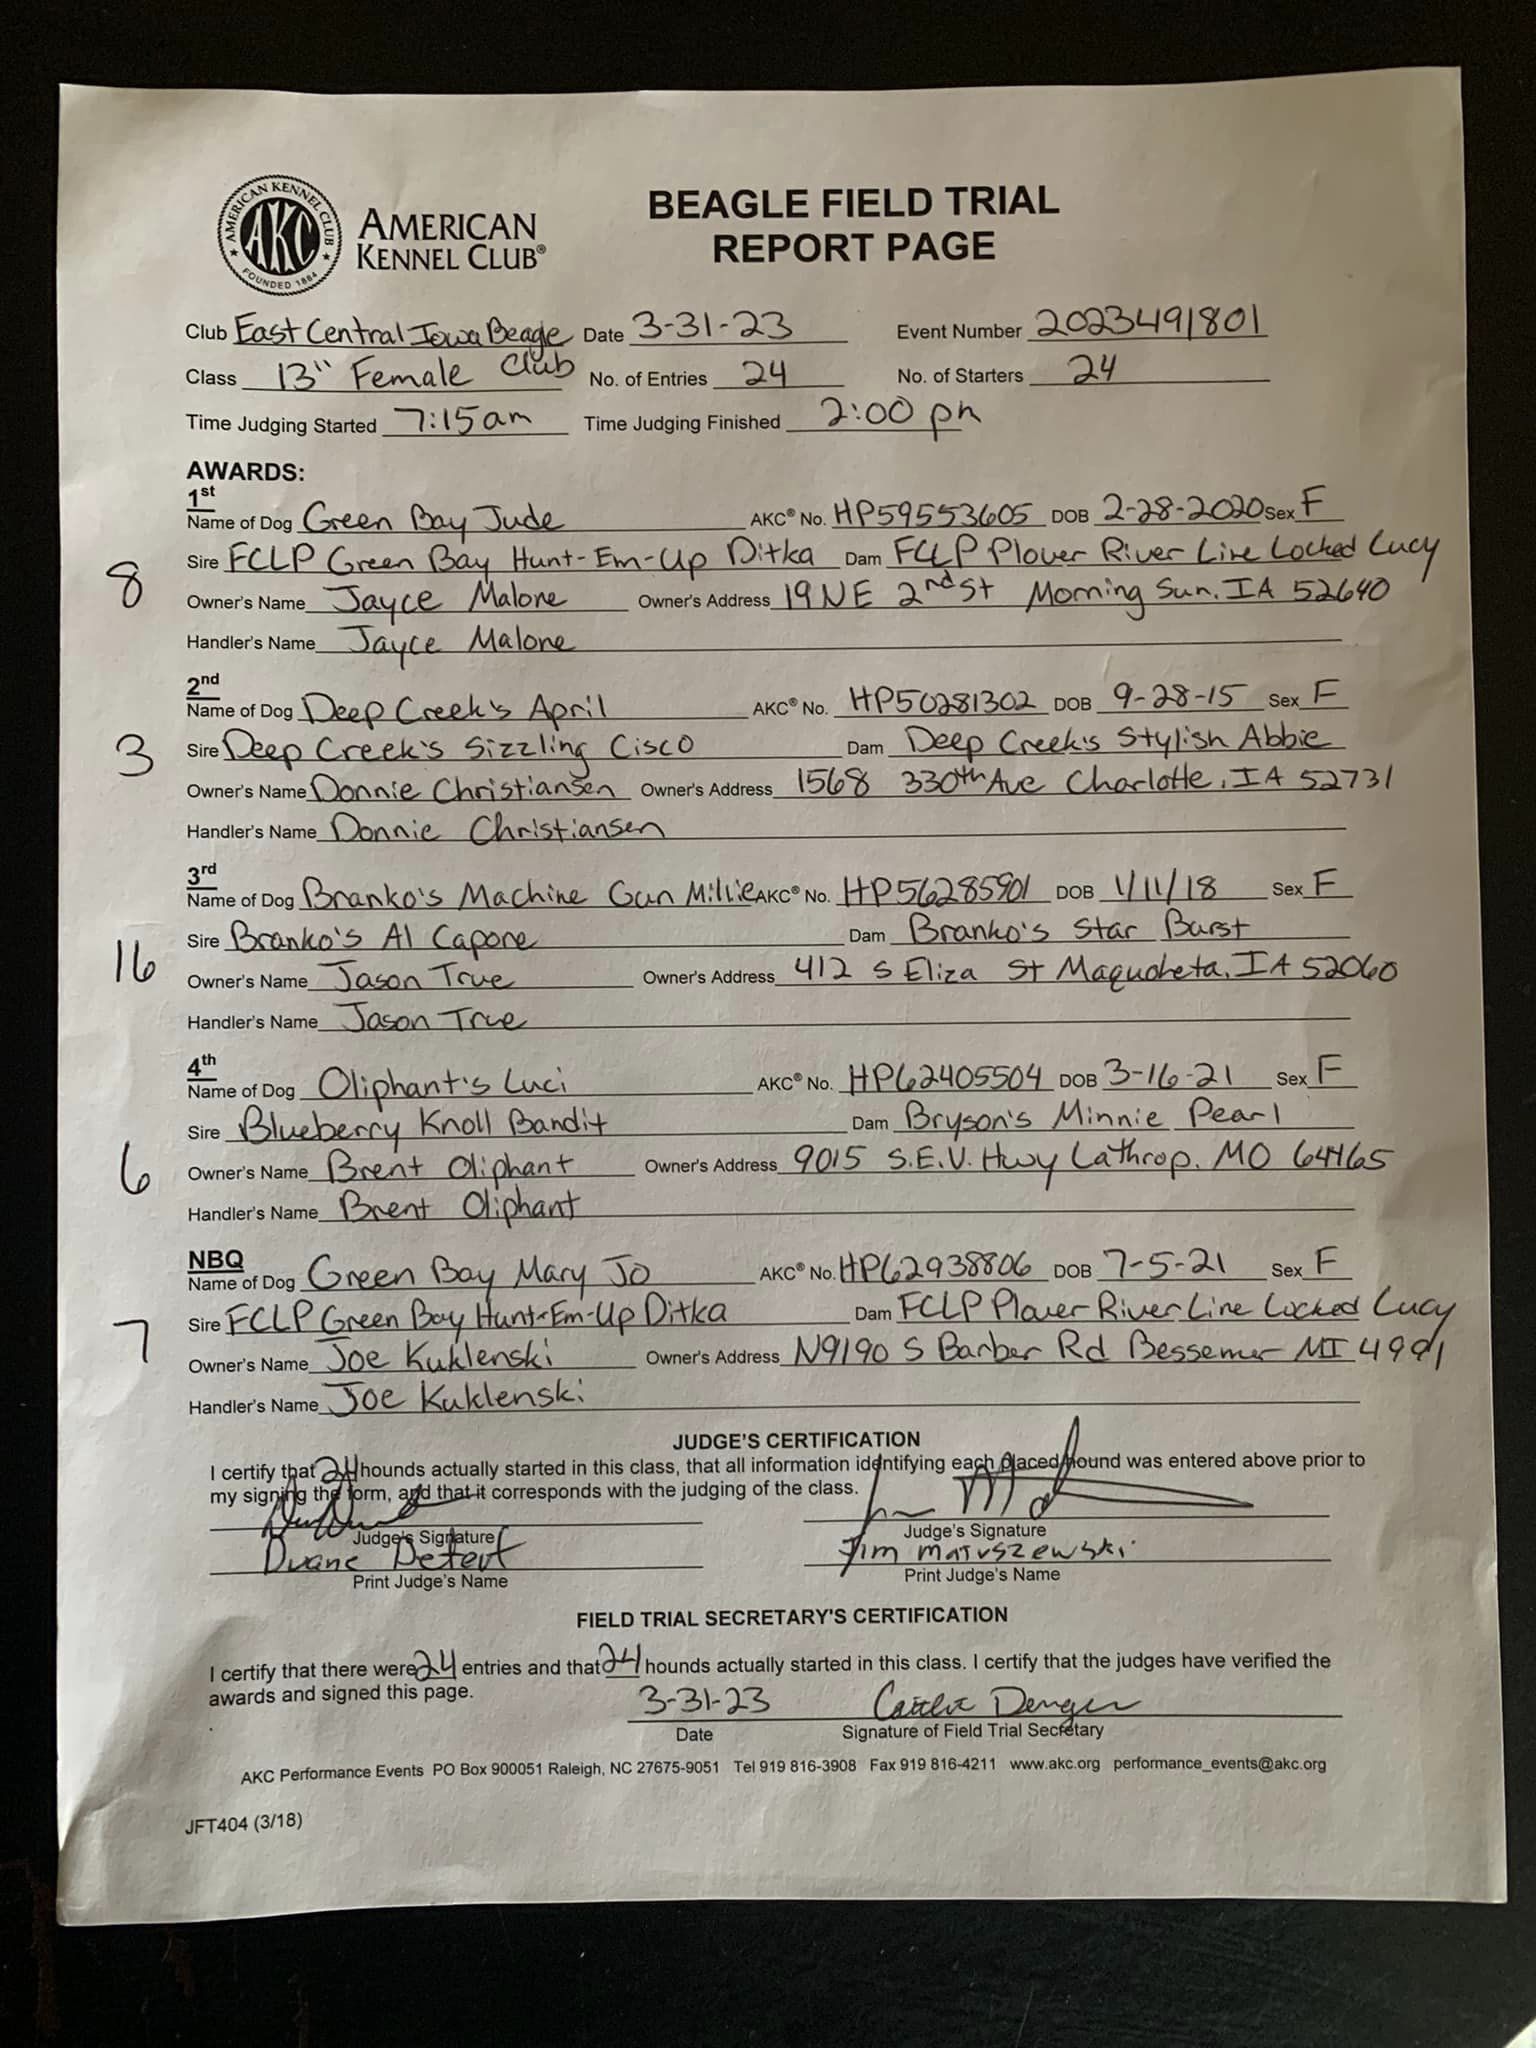 AMERICAN KENNEL CLUB
AKC
FOUNDED 1884
AMERICAN
KENNEL CLUB®
BEAGLE FIELD TRIAL
REPORT PAGE
Club East Central Iowa Beagle Club Date 3-31-23 Event Number 2023491801
Class 13" Female No. of Entries 24 No. of Starters 24
Time Judging Started 7:15am Time Judging Finished 2:00 pm
AWARDS:
1st
Name of Dog Green Bay Jude AKC® No. HP59553605 DOB 2-28-2020 Sex F
Sire FCLP Green Bay Hunt-Em-Up Ditka Dam FCLP Plover River Line Locked Lucy
8
Owner's Name Jayce Malone Owner's Address 19 NE 2nd St Morning Sun, IA 52640
Handler's Name Jayce Malone
2nd
Name of Dog Deep Creek's April AKC® No. HP50281302 DOB 9-28-15 Sex F
3 Sire Deep Creek's Sizzling Cisco Dam Deep Creek's Stylish Abbie
Owner's Name Donnie Christiansen Owner's Address 1568 330th Ave Charlotte, IA 52731
Handler's Name Donnie Christiansen
3rd
Name of Dog Branko's Machine Gun Millie AKC® No. HP56285901 DOB 1/11/18 Sex F
Sire Branko's Al Capone Dam Branko's Star Burst
16
Owner's Name Jason True Owner's Address 412 S Eliza St Maquoketa, IA 52060
Handler's Name Jason True
4th
Name of Dog Oliphant's Luci AKC® No. HP62405504 DOB 3-16-21 Sex F
Sire Blueberry Knoll Bandit Dam Bryson's Minnie Pearl
6 Owner's Name Brent Oliphant Owner's Address 9015 S.E.V. Hwy Lathrop, MO 64465
Handler's Name Brent Oliphant
NBQ
Name of Dog Green Bay Mary Jo AKC® No. HP62938806 DOB 7-5-21 Sex F
Sire FCLP Green Bay Hunt-Em-Up Ditka Dam FCLP Plover River Line Locked Lucy
7
Owner's Name Joe Kuklenski Owner's Address N9190 S Barber Rd Bessemer MI
Handler's Name Joe Kuklenski
JUDGE'S CERTIFICATION
I certify that 24 hounds actually started in this class, that all information identifying each placed hound was entered above prior to
my signing the form, and that it corresponds with the judging of the class.
Judge's Signature Judge's Signature
Duane Detert Jim Matuszewski
Print Judge's Name Print Judge's Name
FIELD TRIAL SECRETARY'S CERTIFICATION
I certify that there were 24 entries and that 24 hounds actually started in this class. I certify that the judges have verified the
awards and signed this page.
3-31-23
Date Signature of Field Trial Secretary
AKC Performance Events PO Box 900051 Raleigh, NC 27675-9051 Tel 919 816-3908 Fax 919 816-4211 www.akc.org performance_events@akc.org
JFT404 (3/18)